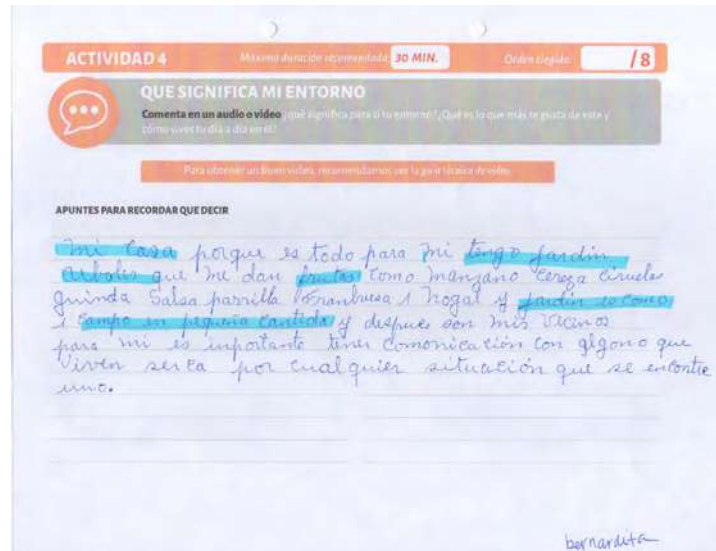 ACTIVIDAD 4 Máxima duración recomendada: 30 MIN. Orden elegido: /8
QUE SIGNIFICA MI ENTORNO
Comenta en un audio o video ¿qué significa para ti tu entorno? ¿Qué es lo que más te gusta de este y
cómo vives tu día a día en él?
Para obtener un buen video, recomendamos ver la guía técnica de video.
APUNTES PARA RECORDAR QUE DECIR
Mi Casa porque es todo para mi tengo jardin
arboles que me dan frutas como manzano cereza ciruelas
guinda Salsa parrilla 1 nogal y jardin es como
1 campo en pequeña cantida y despues son mis vecinos
para mi es inportante tener comonicación con algono que
viven serca por cualquier situación que se encontre
uno.
bernardita